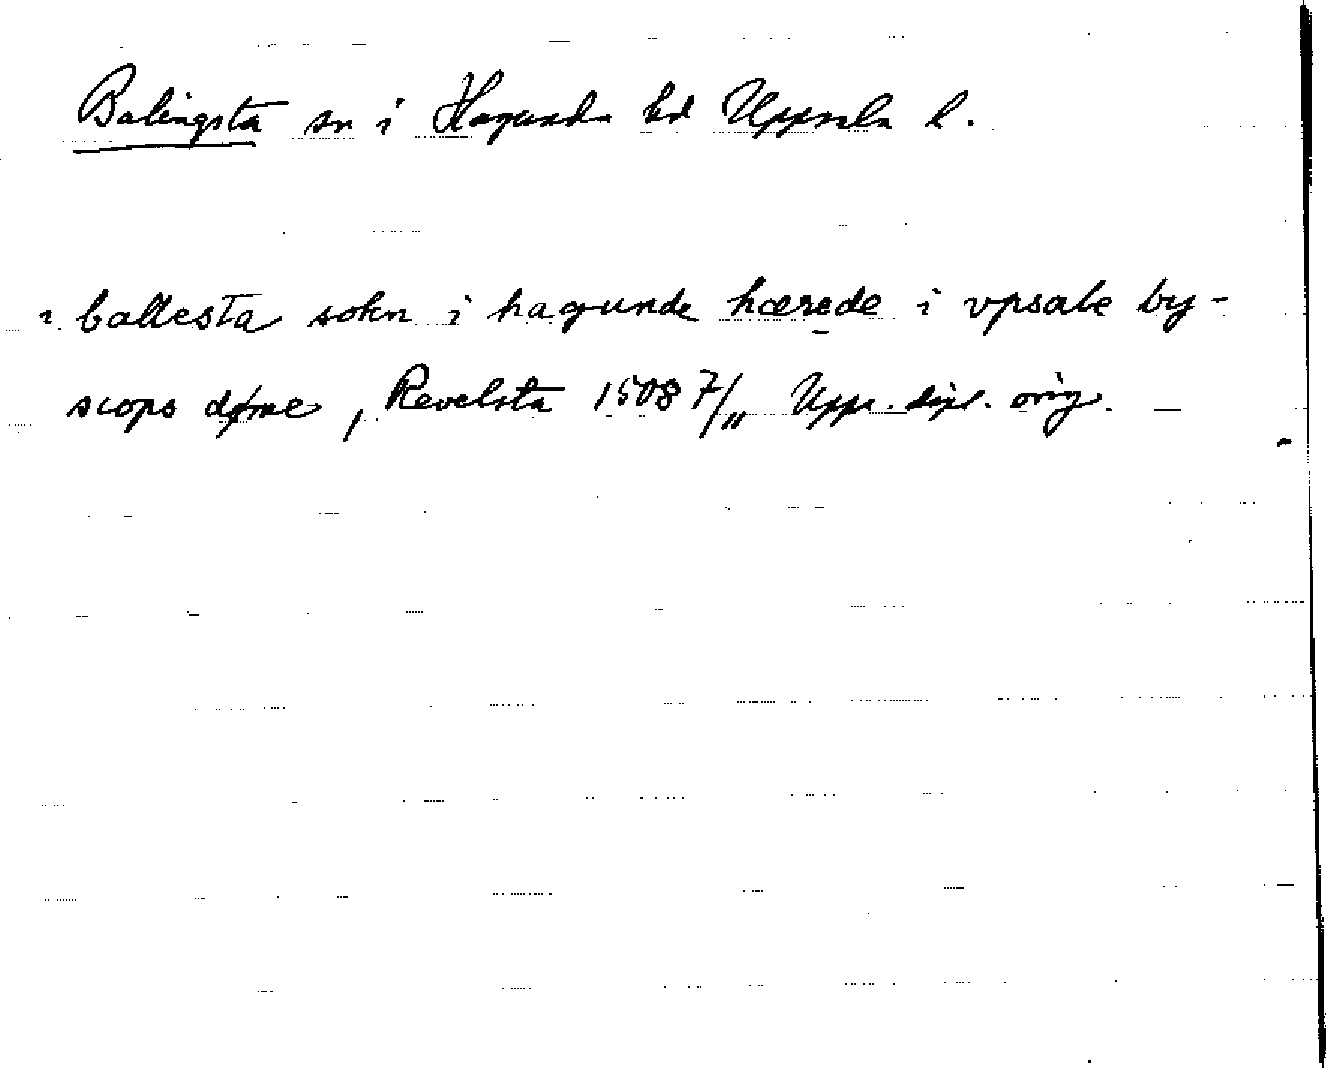 Balingsta sn i Hagunda hd Uppsala l.
i ballesta sokn i hagunde hærede i vpsale by-
scops døme, Revelsta 1508 7/11 Upps. dipl. orig. —